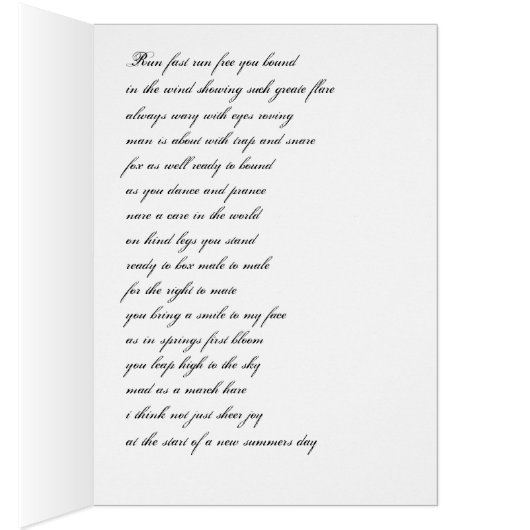 Run fast run free you bound
in the wind showing such greate flare
always wary with eyes roving
man is about with trap and snare
fox as well ready to bound
as you dance and prance
nare a care in the world
on hind legs you stand
ready to box male to male
for the right to mate
you bring a smile to my face
as in springs first bloom
you leap high to the sky
mad as a march hare
i think not just sheer joy
at the start of a new summers day